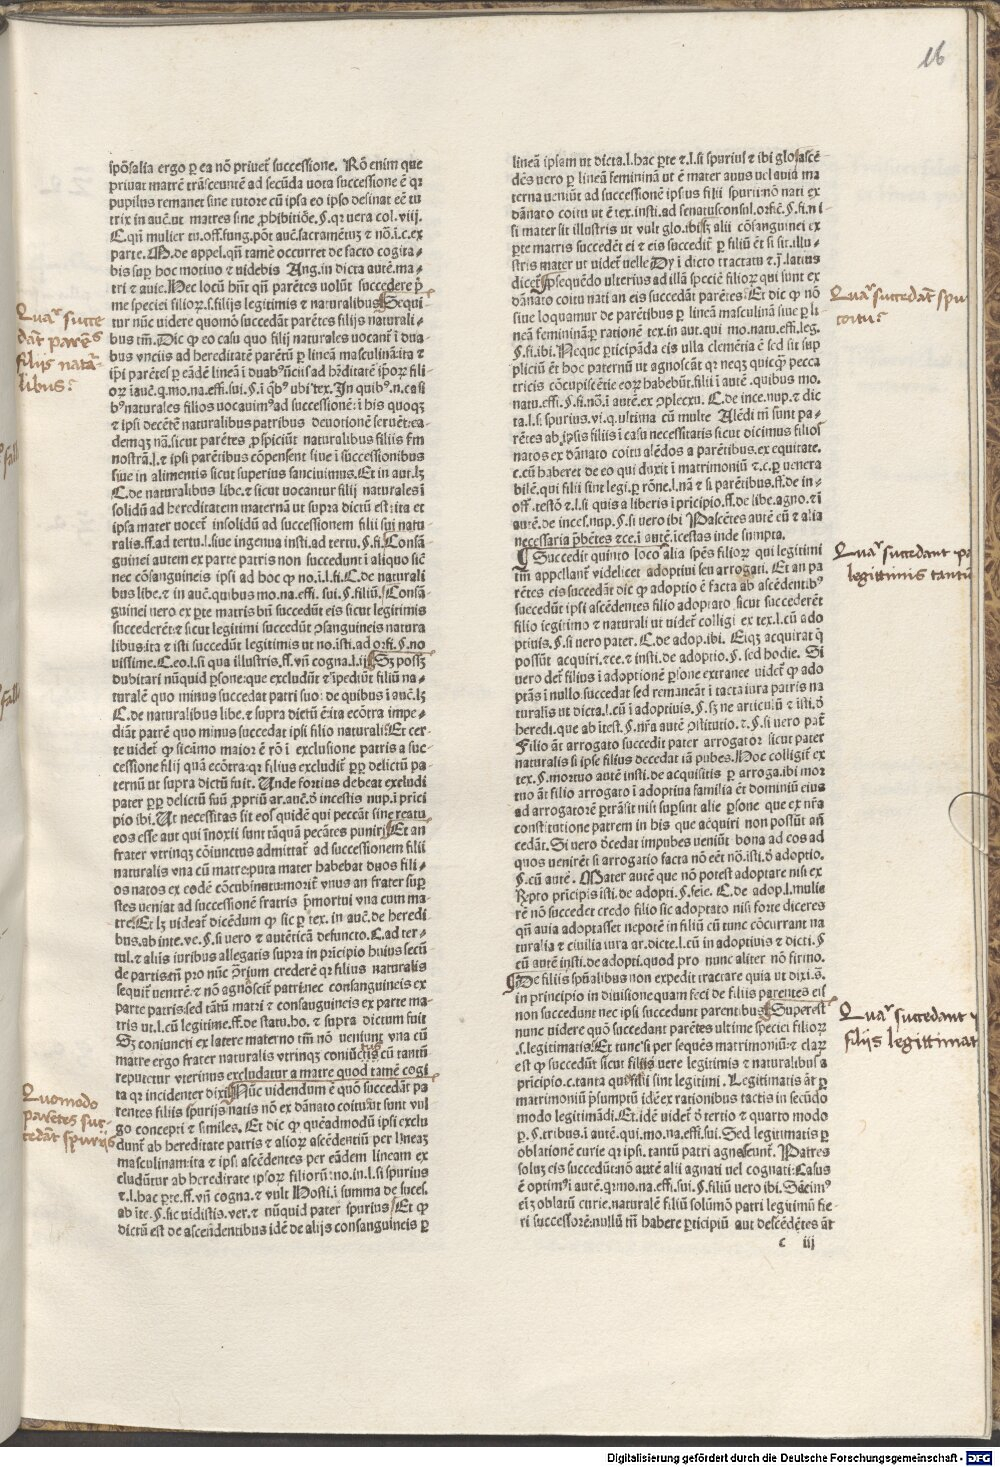 16
spōsalia ergo ꝑ ea nō priuet̄ successione. Rō enim que
priuat matrē trāseuntē ad secūda uota successione ē qꝛ
pupilus remanet sine tutore cū ipsa eo ipso desinat eē tu
trix in auē.ut matres sine ꝓhibitiōe.§.qꝛ uera col.viij.
C.qn̄ mulier tu.off.fung.pōt auē.sacramētuꝫ ⁊ nō.i.c.ex
parte.M.de appel.qn̄ tamē occurret de facto cogita⸗
bis suꝑ hoc motiuo ⁊ uidebis Ang.in dicta autē.ma⸗
tri ⁊ auie. Hec locū hn̄t qn̄ parētes uolūt succedere pri
me speciei filioꝝ.s.filijs legitimis ⁊ naturalibus Sequi
tur nūc uidere quomō succedāt parētes filijs naturali⸗
bus tm̄. Dic ꝙ eo casu quo filij naturales uocant̄ i dua
bus vncijs ad hereditatē parētū ꝑ lineā masculinā:ita ⁊
ip̄i parētes ꝑ eādē lineā i duabꝰ
nostrā.l.⁊ ipsi parētibus cōpensent siue i successionibus
siue in alimentis sicut superius sanciuimus. Et in aut.lꝫ
C.de naturalibus libe.⁊ sicut uocantur filij naturales i
solidū ad hereditatem maternā ut supra dictū est:ita et
ipsa mater uocet̄ insolidū ad successionem filii sui natu
ralis.ff.ad tertu.l.siue ingenua insti.ad tertu.§.fi. Consā
guinei autem ex parte patris non succedunt i aliquo sic
nec cōsanguineis ipsi ad hoc ꝙ no.i.l.fi.C.de naturali
bus libe.⁊ in auē.quibus mo.na.effi.sui.§.filiū. Consā
guinei uero ex ꝑte matris bn̄ succedūt eis sicut legitimis
succederēt:⁊ sicut legitimi succedūt ꝯsanguineis natura
libus:ita ⁊ isti succedūt legitimis ut no.isti.ad orfi.§.no
uissime.C.eo.l.si qua illustris.ff.vn̄ cogna.l.ij Sꝫ possꝫ
dubitari nūquid ꝑsone:que excludūt ⁊ īpediūt filiū na⸗
turalē quo minus succedat patri suo: de quibus i auē.lꝫ
C.de naturalibus libe.⁊ supra dictū ē:ita ecōtra impe⸗
diāt patrē quo minus succedat ipsi filio naturali: Et cer
te uidet̄ ꝙ sic:imo maior ē rō i exclusione patris a suc
cessione filij quā ecōtra:qꝛ filius excludit̄ ꝓꝑ delictū pa⸗
ternū ut supra dictū fuit. Unde fortius debeat excludi
pater ꝓꝑ delictū suū ꝓpriū ar.auē.d̄ incestis nup.i prici
pio ibi. Ut necessitas sit eos quidē qui peccāt sine reatu
eos esse aut qui inoxii sunt tāquā pecātes puniri Et an
frater vtrinqꝫ cōiunctus admittat̄ ad successionem filii
naturalis vna cū matre:puta mater habebat duos fili⸗
os natos ex eodē cōcubinatu:morit̄ vnus an frater suꝑ
stes ueniat ad successionē fratris p̄mortui vna cum ma
tre. Et lꝫ uideat̄ dicēdum ꝙ sic ꝑ tex. in auē.de heredi
bus.ab inte.ve.§.si uero ⁊ autēticā defuncto.C.ad ter⸗
tul.⁊ aliis iuribus allegatis supra in pricipio huius secū
de partis.tn̄ pro nūc
sequit̄ uentrē.⁊ nō agnoscit̄ patri:nec consanguineis ex
parte patris:sed tātū matri ⁊ consanguineis ex parte ma⸗
tris ut.l.cū legitime.ff.de statu.ho.⁊ supra dictum fuit
Sꝫ coniuncti ex latere materno tm̄ nō ueniunt vna cū
matre ergo frater naturalis vtrinqꝫ coniūctus cū tantū
reputetur vterinus excludatur a matre quod tamē cogi
ta qꝛ incidenter dixi Nūc uidendum ē quō succedāt pa
rentes filiis spurijs natis nō ex dānato coitu:ut sunt vul
go concepti ⁊ similes. Et dic ꝙ quēadmodū ipsi exclu
dunt̄ ab hereditate patris ⁊ alioꝝ ascēdentiū per lineaꝫ
masculinam:ita ⁊ ipsi ascēdentes per eādem lineam ex
cludūtur ab hereditate ipsoꝝ filiorū:no.in.l.si spurius
⁊.l.hac ꝑte.ff.vn̄ cogna.⁊ vult Hosti.i summa de succes.
ab ite.§.sic uidistis.ver.⁊ nūquid pater spurius Et ꝙ
dictū est de ascendentibus idē de alijs consanguineis ꝑ
lineā ipsam ut dicta.l.hac ꝑte ⁊.l.si spurius ⁊ ibi glo:ascē
dēs uero ꝑ lineā femininā ut ē mater auus uel auia ma
terna ueniūt ad successionē ipsius filii spurii:nō nati ex
dānato coitu ut ē tex.insti.ad senatusconsul.orfic.§.fi.ni
si mater sit illustris ut vult glo.ibi.sꝫ alii cōsanguinei ex
ꝑte matris succedēt ei ⁊ eis succedit̄ ꝑ filiū ēt si sit.illu⸗
stris mater ut uidet̄ uelle Dy.i dicto tractatu ⁊.j.latius
dicet̄ Psequēdo ulterius ad illā speciē filioꝝ qui sunt ex
dānato coitu nati an eis succedāt parētes. Et dic ꝙ nō
siue loquamur de parētibus ꝑ lineā masculinā siue ꝑ li⸗
neā femininā:ꝑ rationē tex.in aut.qui mo.natu.effi.leg.
§.fi.ibi. Neque ꝑticipāda eis ulla clemētia ē sed sit sup
pliciū ēt hoc paternū ut agnoscāt qꝛ neqꝫ quicqꝫ pecca
tricis cōcupiscētie eoꝝ habebūt.filii i autē.quibus mo.
natu.effi.§.fi.nō.i autē.ex ꝯplexu. C.de ince.nup.⁊ dic
ta.l.si spurius.vi.q.ultima cū multe Alēdi tn̄ sunt pa⸗
rētes ab ipsis filiis i casu necessitatis sicut dicimus filios
natos ex dānato coitu alēdos a parētibus.ex equitate.
c.cū haberet de eo qui duxit i matrimoniū ⁊.c.ꝑ uenera
bilē.qui filii sint legi.ꝑ rōne.l.nā ⁊ si parētibus.ff.de in⸗
off.testō ⁊.l.si quis a liberis i pricipio.ff.de libe.agno.⁊ i
autē.de inces.nup.§.si uero ibi Pascētes autē eū ⁊ alia
necessaria p̄bētes ⁊ce.i autē.icestas inde sumpta.
¶ Succedit quinto loco alia spēs filioꝝ qui legitimi
tm̄ appellant̄ videlicet adoptiui seu arrogati. Et an pa
rētes eis succedāt dic ꝙ adoptio ē facta ab ascēdentibꝰ
succedūt ipsi ascēdentes filio adoptato sicut succederēt
filio legitimo ⁊ naturali ut uidet̄ colligi ex tex.l.cū ado
ptiuis.§.si uero pater. C.de adop.ibi. Eiqꝫ acquirat q̄
possūt acquiri.⁊ce.⁊ insti.de adoptio.§.sed hodie. Si
uero det̄ filius i adoptionē ꝑsone extranee uidet̄ ꝙ ado
ptās i nullo succedat sed remaneāt i tacta iura patris na
turalis ut dicta.l.cū i adoptiuis.§.sꝫ ne articulū ⁊ isti.d̄
heredi.que ab itest.§.nr̄a autē ꝯstitutio.⁊.§.si uero pat̄
Filio āt arrogato succedit pater arrogator sicut pater
naturalis si ipse filius decedat iā pubes. Hoc colligit̄ ex
tex.§.mortuo autē insti.de acquisitis ꝑ arroga.ibi mor
tuo āt filio arrogato i adoptiua familia ēt dominiū eius
ad arrogatorē ꝑtrāsit nisi suꝑsint alie ꝑsone que ex nr̄a
constitutione patrem in his que acquiri non possūt an̄
cedāt. Si uero d̄cedat impubes ueniūt bona ad eos ad
quos uenirēt si arrogatio facta nō eēt nō.isti.d̄ adoptio.
§.cū autē. Mater autē que nō potest adoptare nisi ex
Rꝑto pricipis isti.de adopti.§.feie. C.de adop.l.mulie
rē nō succedet credo filio sic adoptato nisi forte diceres
qn̄ auia adoptasset nepotē in filiū cū tunc cōcurrant na
turalia ⁊ ciuilia iura ar.dicte.l.cū in adoptiuis ⁊ dicti.§
cū autē insti.de adopti.quod pro nunc aliter nō firmo.
De filiis spūalibus non expedit tractare quia ut dixi.s̄.
in principio in diuisione:quam feci de filiis parentes eis
non succedunt nec ipsi succedunt parentibus Superest
nunc videre quō succedant parētes ultime speciei filioꝝ
.s.legitimatis. Et tunc si per sequēs matrimoniū:⁊ clarꝫ
est ꝙ succedūt sicut filiis uere legitimis ⁊ naturalibus a
pricipio.c.tanta qui filii sint legitimi. Legitimatis āt ꝑ
matrimoniū p̄sumptū idē:ex rationibus tactis in secūdo
modo legitimādi. Et idē uidet̄ d̄ tertio ⁊ quarto modo
ꝑ.§.tribus.i autē.qui.mo.na.effi.sui. Sed legitimatis ꝑ
oblationē curie qꝛ ipsi.tantū patri agnascunt̄. Patres
soluꝫ eis succedūt:nō autē alii agnati uel cognati: Casus
ē optimꝰ i autē.q̄mo.na.effi.sui.§.filiū uero ibi.
ei ꝫ oblatū curie.naturalē filiū solūmō patri legitimū fie⸗
ri successorē:nullū tn̄ habere ꝑticipiū aut descēdētes āt
c iij
Qualr succe
dāt parētes
filijs natu⸗
libus:
Quomodo
parētes suc⸗
cedāt spurijs
Qualr succedāt spu
Qualr succedant pa
legittimis tantū
Qualr succedant
filijs legittimat
Digitalisierung gefördert durch die Deutsche Forschungsgemeinschaft - DFG